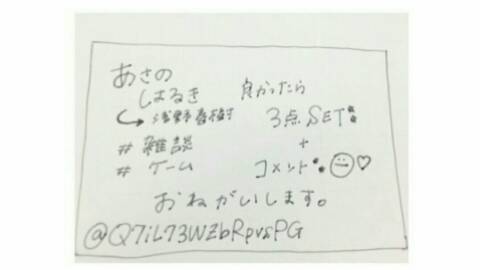 あさの
はるき
↳浅野春樹
#雑談
#ゲーム
良かったら
3点SET
+
コメント
おねがいします。
@Q7iL73WZbRpvsPG